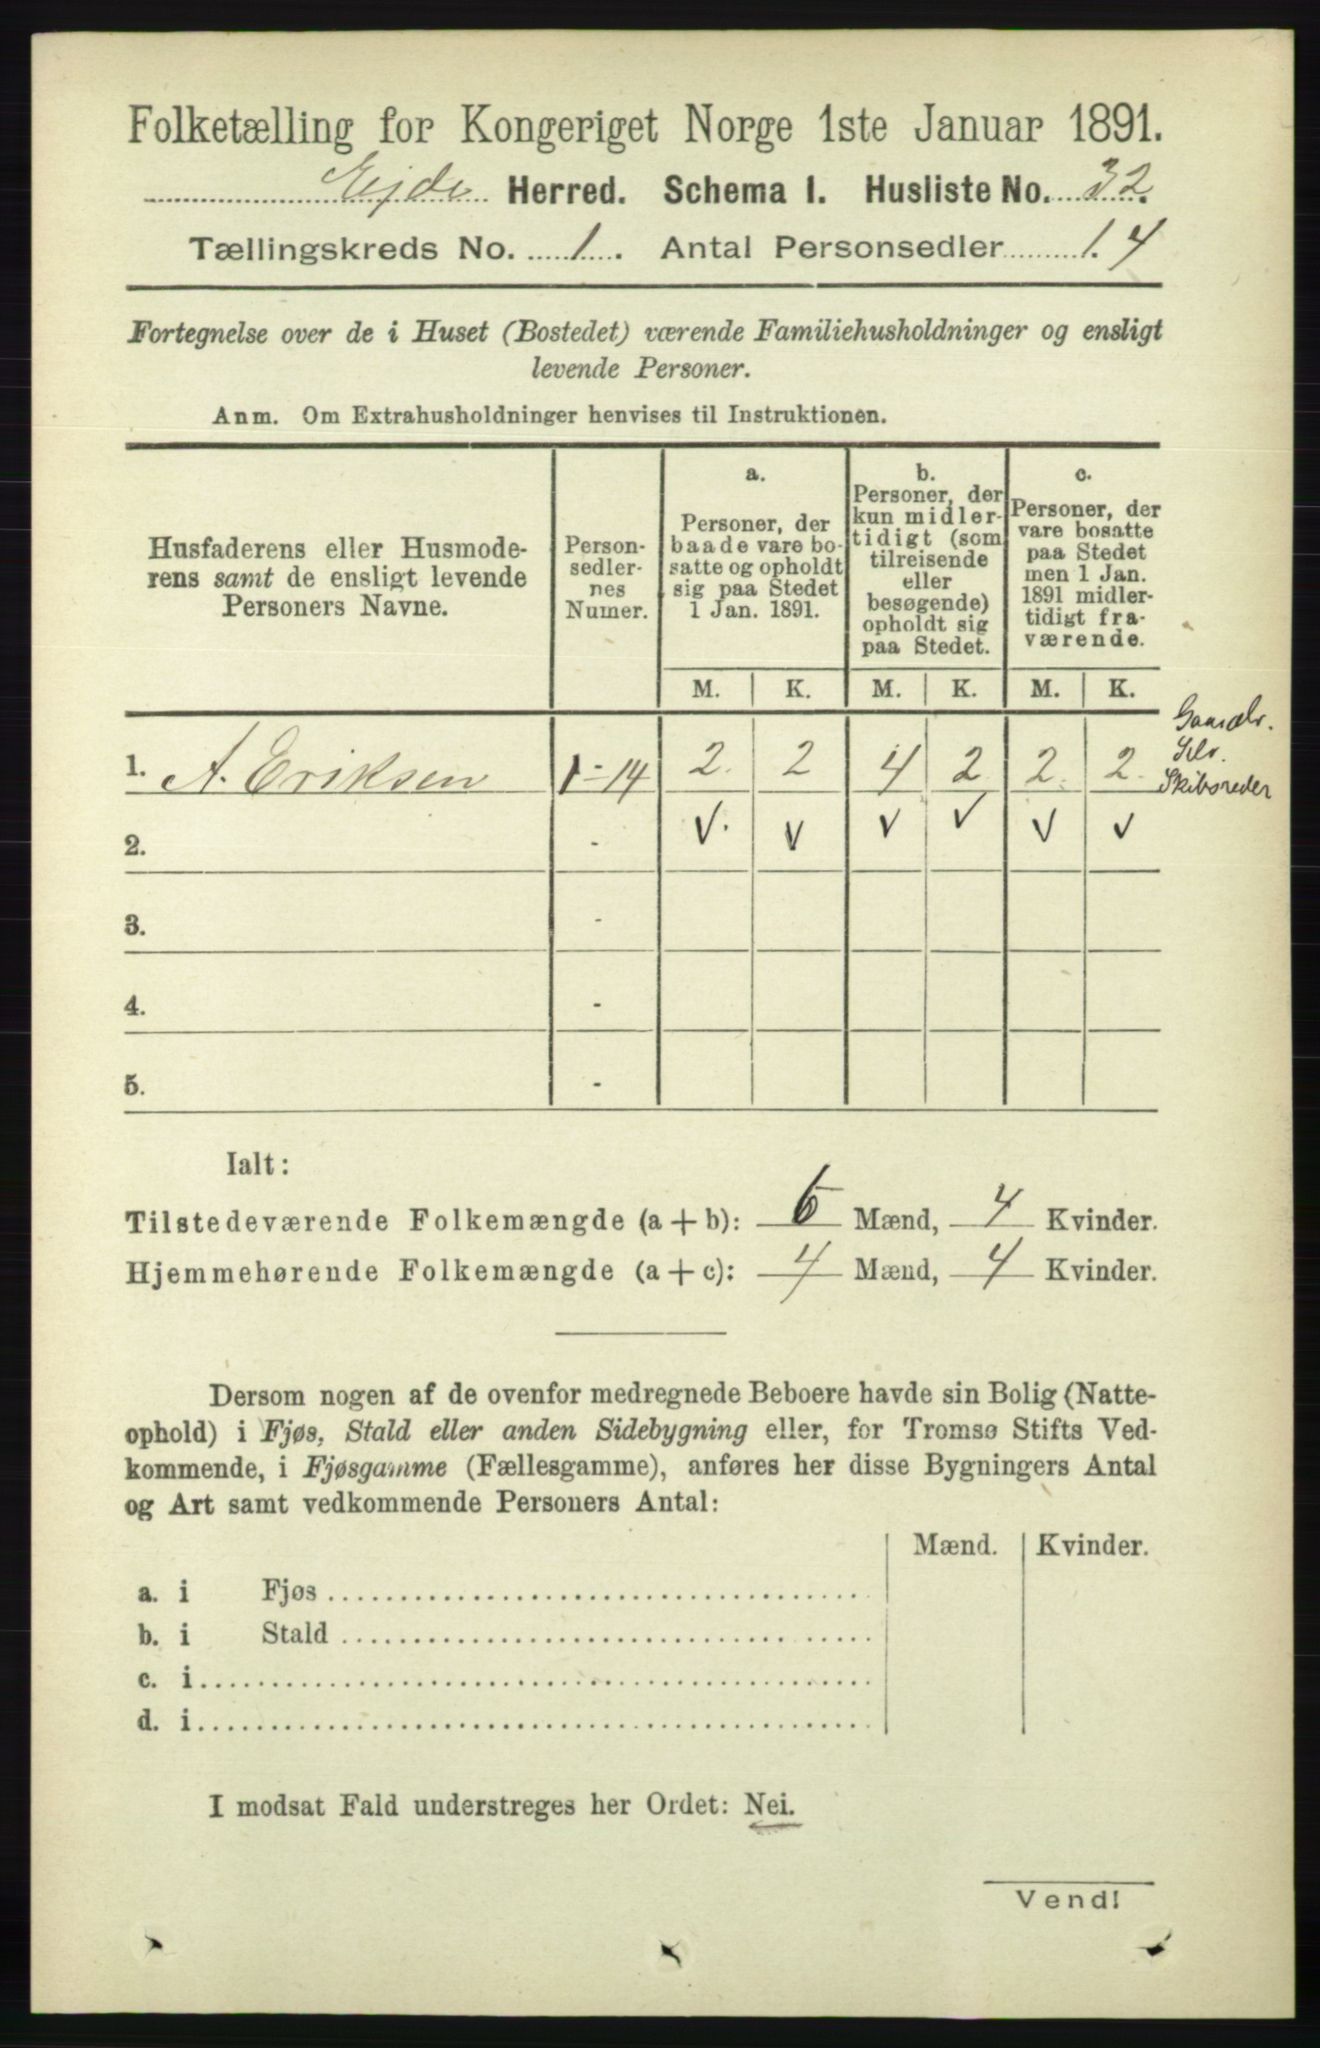 Folketælling for Kongeriget Norge 1ste Januar 1891.
Eide Herred. Schema 1. Husliste No. 32
Tællingskreds No. 1. Antal Personsedler 14
Fortegnelse over de i Huset (Bostedet) værende Familiehusholdninger og ensligt
levende Personer.
Anm. Om Extrahusholdninger henvises til Instruktionen.
Husfaderens eller Husmode-
rens samt de ensligt levende
Personers Navne.
Person-
sedler-
nes
Numer.
a.
Personer, der
baade vare bo-
satte og opholdt
sig paa Stedet
1 Jan. 1891.
b.
Personer, der
kun midler-
tidigt (som
tilreisende
eller
besøgende)
opholdt sig
paa Stedet.
c.
Personer, der
vare bosatte
paa Stedet
men 1 Jan.
1891 midler-
tidigt fra-
værende.
M. K. M. K. M. K.
1. A. Eriksen 1-14 2. 2 4 2 2. 2
Gaardbr.
Selv.
Skibsreder
2. - √. √ √ √ √ √
3. -
4. -
5. -
Ialt:
Tilstedeværende Folkemængde (a + b): 6 Mænd, 4 Kvinder.
Hjemmehørende Folkemængde (a + c): 4 Mænd, 4 Kvinder.
Dersom nogen af de ovenfor medregnede Beboere havde sin Bolig (Natte-
ophold) i Fjøs, Stald eller anden Sidebygning eller, for Tromsø Stifts Ved-
kommende, i Fjøsgamme (Fællesgamme), anføres her disse Bygningers Antal
og Art samt vedkommende Personers Antal:
Mænd. Kvinder.
a. i Fjøs
b. i Stald
c. i
d. i
I modsat Fald understreges her Ordet: Nei.
Vend!